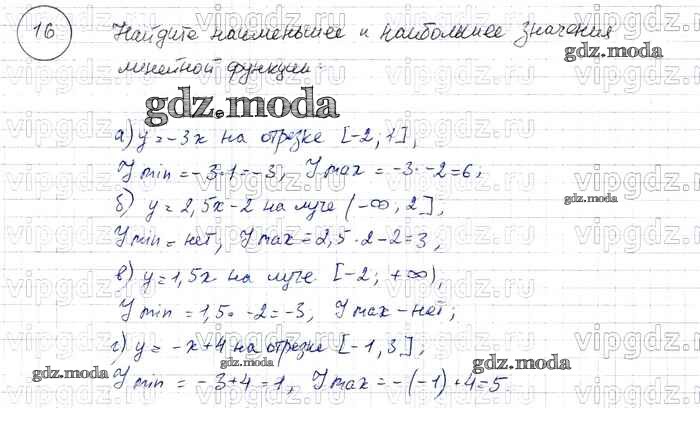 16 Найдите наименьшее и наибольшее значения
линейной функции:
gdz.moda
а) y = -3x на отрезке [-2; 1],
Y min = -3·1 = -3, Y max = -3·-2 = 6;
gdz.moda
б) y = 2,5x-2 на луче (-∞, 2],
Y min = нет, Y max = 2,5·2-2 = 3,
в) y = 1,5x на луче [-2; +∞),
Y min = 1,5·-2 = -3, Y max - нет;
gdz.moda
г) y = -x+4 на отрезке [-1, 3];
gdz.moda gdz.moda
Y min = -3+4 = 1, Y max = -(-1)+4 = 5
gdz.moda
vipgdz.ru